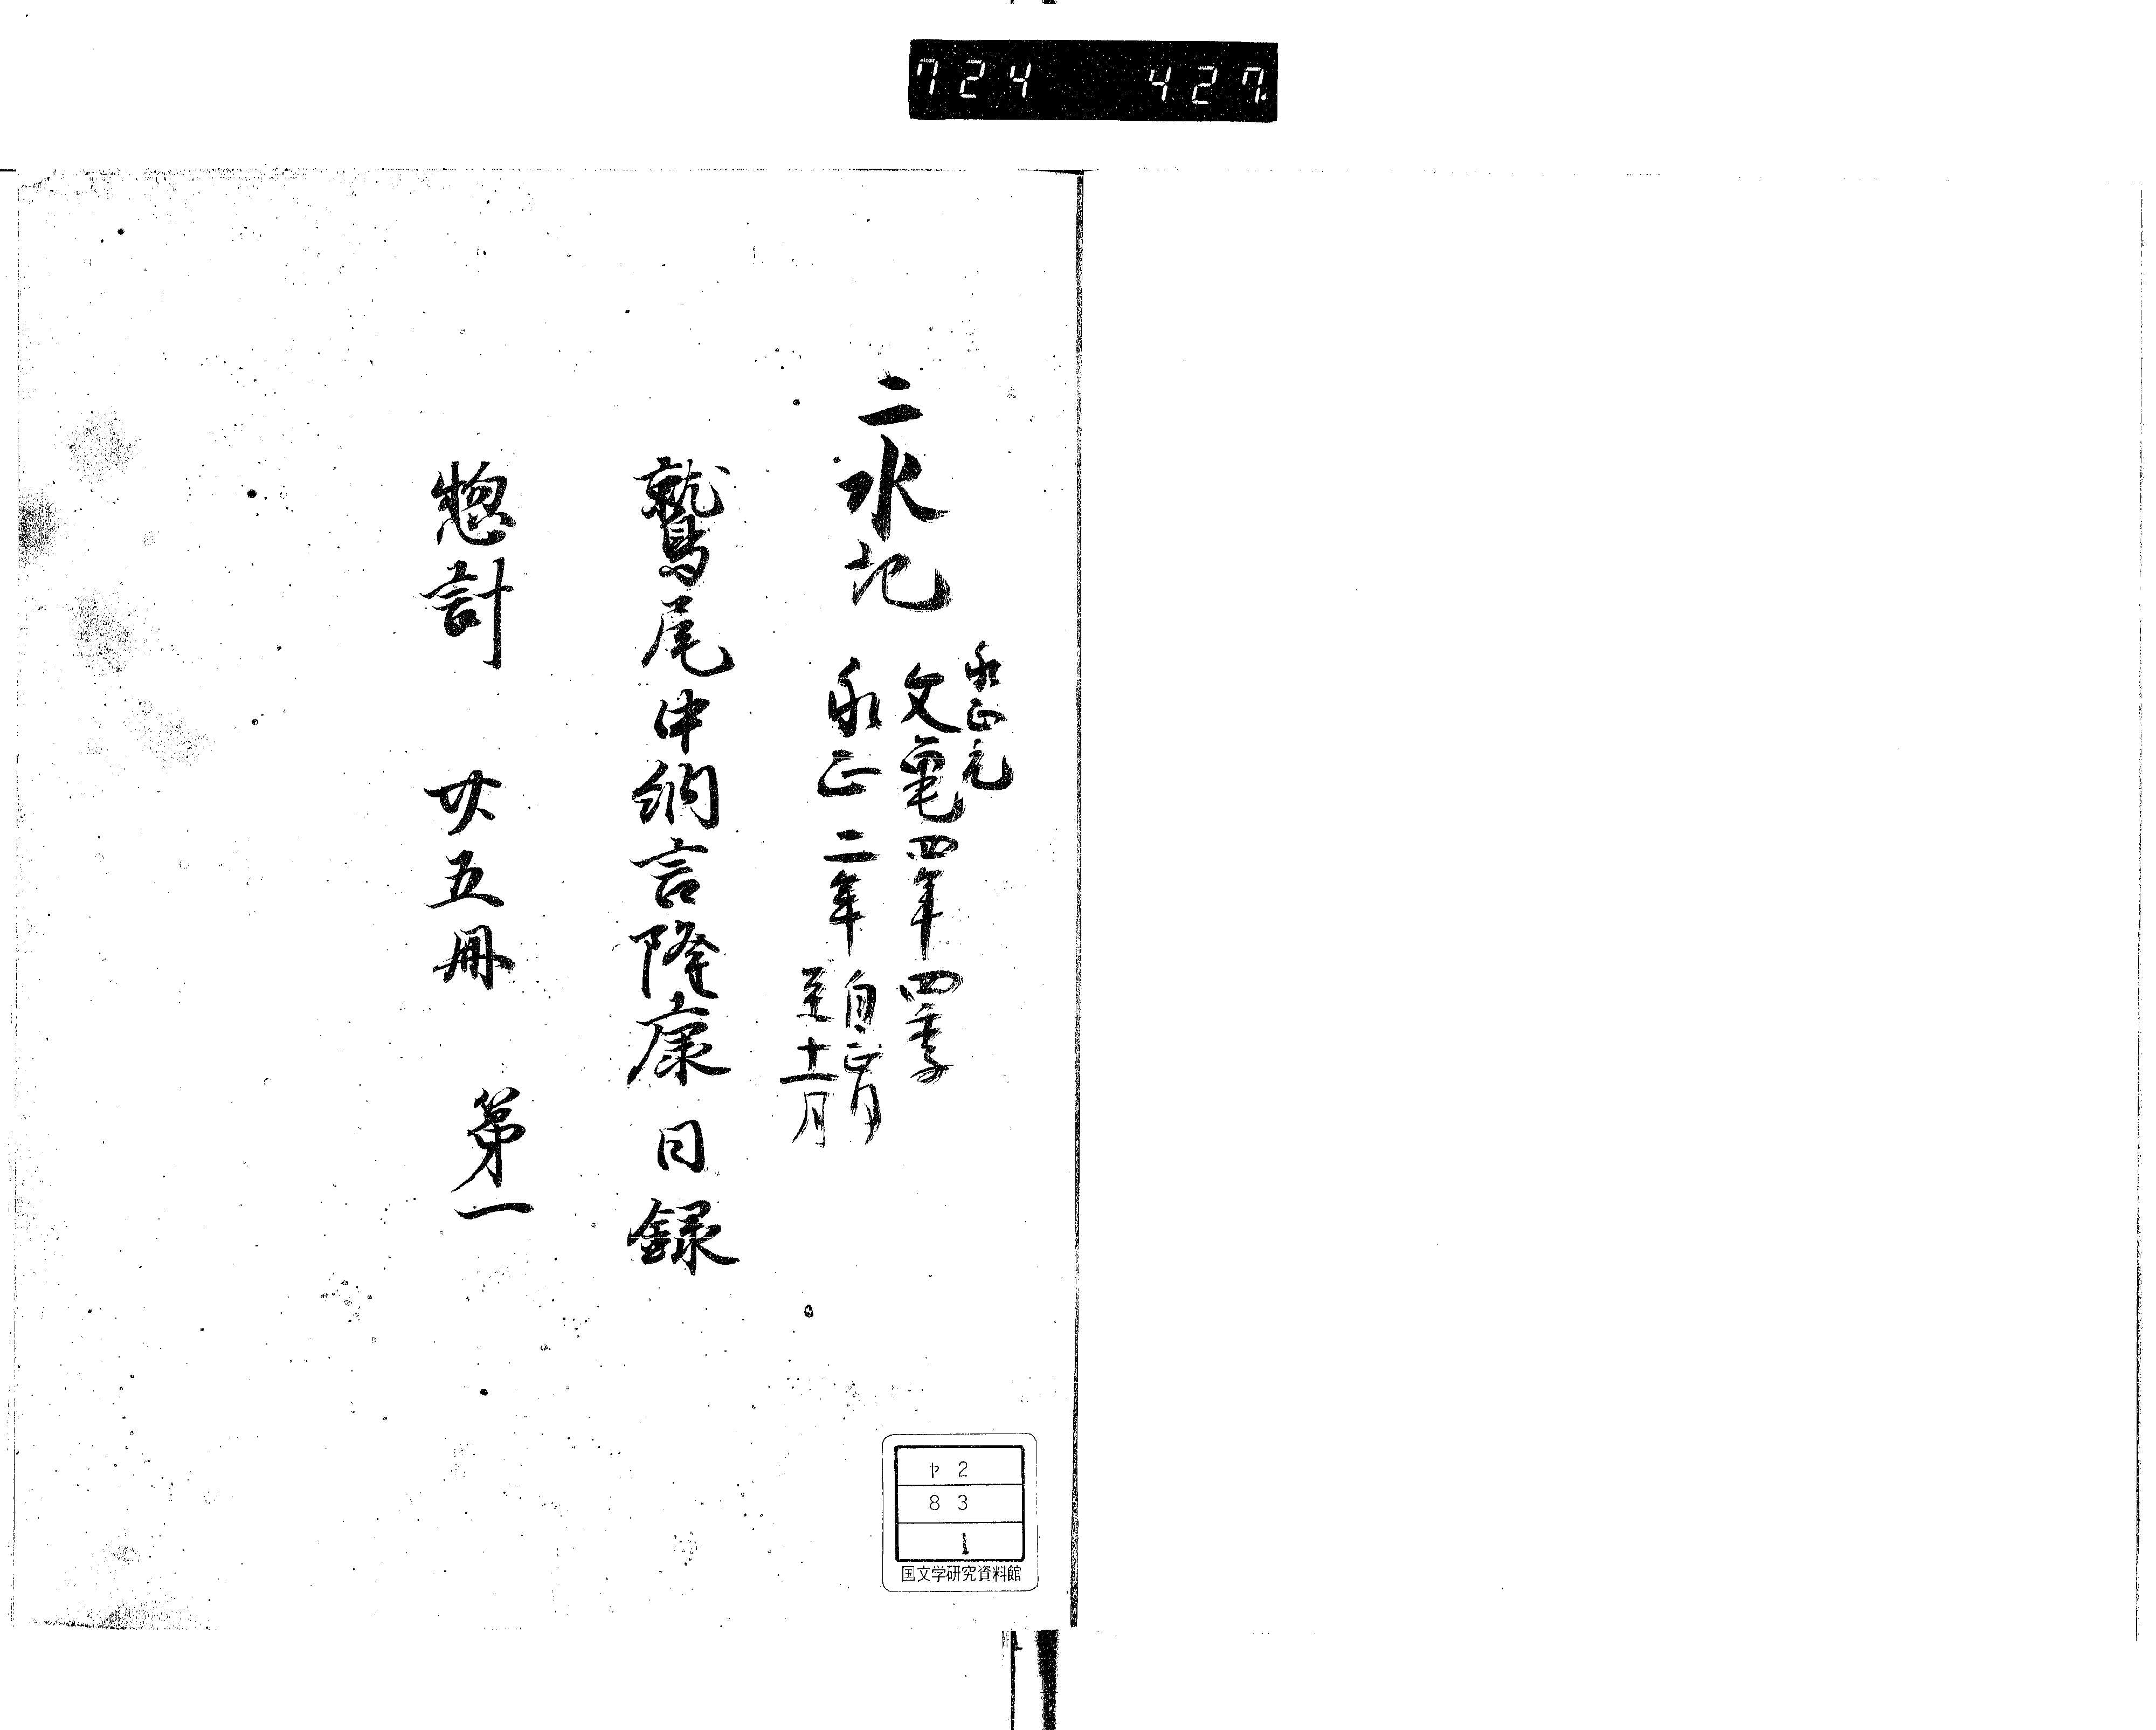 724 427
二水記
永正元
文亀四年四季
永正二年
自正月
至十二月
鷲尾中納言隆康日録
惣計 廿五冊 第一
ヤ2
83
1
国文学研究資料館